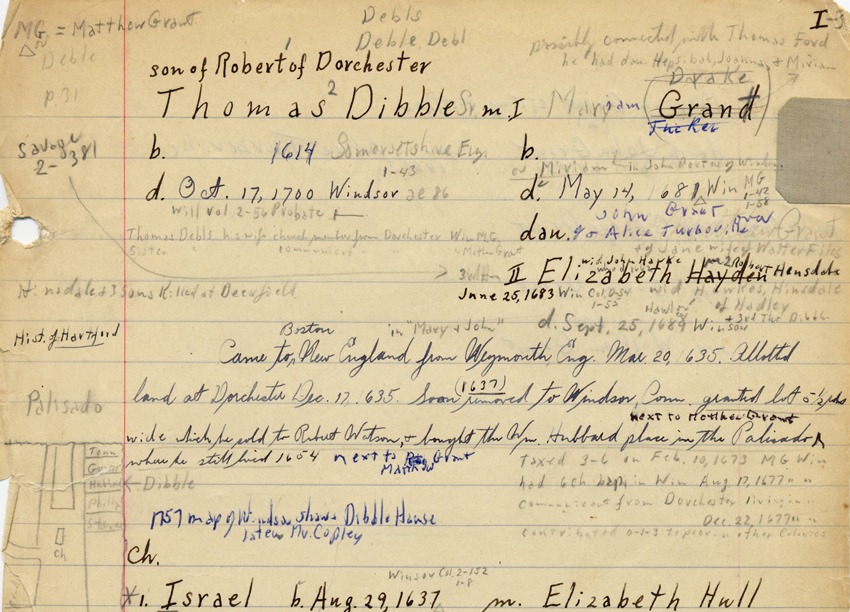 MG. = Matthew Grant
or
Deble
p. 31
Debls
Deble, Debl
I-3
possibly connected with Thomas Ford
he had dau. Hepsibah, Joanna, & Miriam
son of Robert' of Dorchester
Drake
Thomas² Dibble Sr. m. I Mariam Grant
Tucker
Savage
2-381
b. 1614 Somersetshire Eng.
1-43
b.
or Miriam in John Porter of Windsor
d. Oct. 17, 1700 Windsor ae 86
d. May 14, 1681, Win MG
1-42
1-58
will vol 2-56 Probate
John Grant
dau. of & Alice Turbov
Thomas Debls his wife church members from Dorchester Win M.G.
sister communicant Matthew Grant
& Jane wife of Walter Files
wid John Hawks
m 2 Robert
> 3rd
II Elizabeth Hayden Hensdale
June 25, 1683 Win Col. D-54
1-55
wid H. Hawkes, Hinsdale
of Hadley
+ 3rd Tho Dibble
Hinsdale & 3 sons Killed at Deerfield
d. Sept. 25, 1689 Windsor
Hist. of Hartford
Boston
in "Mary & John"
Came to New England from Weymouth, Eng. Mar. 20, 1635. Allotted
land at Dorchester Dec. 17, 1635. Soon removed to Windsor, Conn. granted lot
(1637)
next to Matthew Grant
Palisado
wide which he sold to Robert Watson, & bought the Wm. Hubbard place in the Palisado
where he still lived 1654 next to Grant
Matthew
taxed 3-6 on Feb. 10, 1673 MG Win
had 6 ch. bap. in Win Aug. 17, 1677 " "
communicant from Dorchester living " "
Dec. 22, 1677 " "
contributed 0-1-3 to poor in other Colonies
Grant
<- Dibble
Phillip
ch
1757 map of Windsor shows Dibble House
later Mr. Copley
Ch.
Windsor Col. 2-152
1-8
*1. Israel b. Aug. 29, 1637 m. Elizabeth Hull